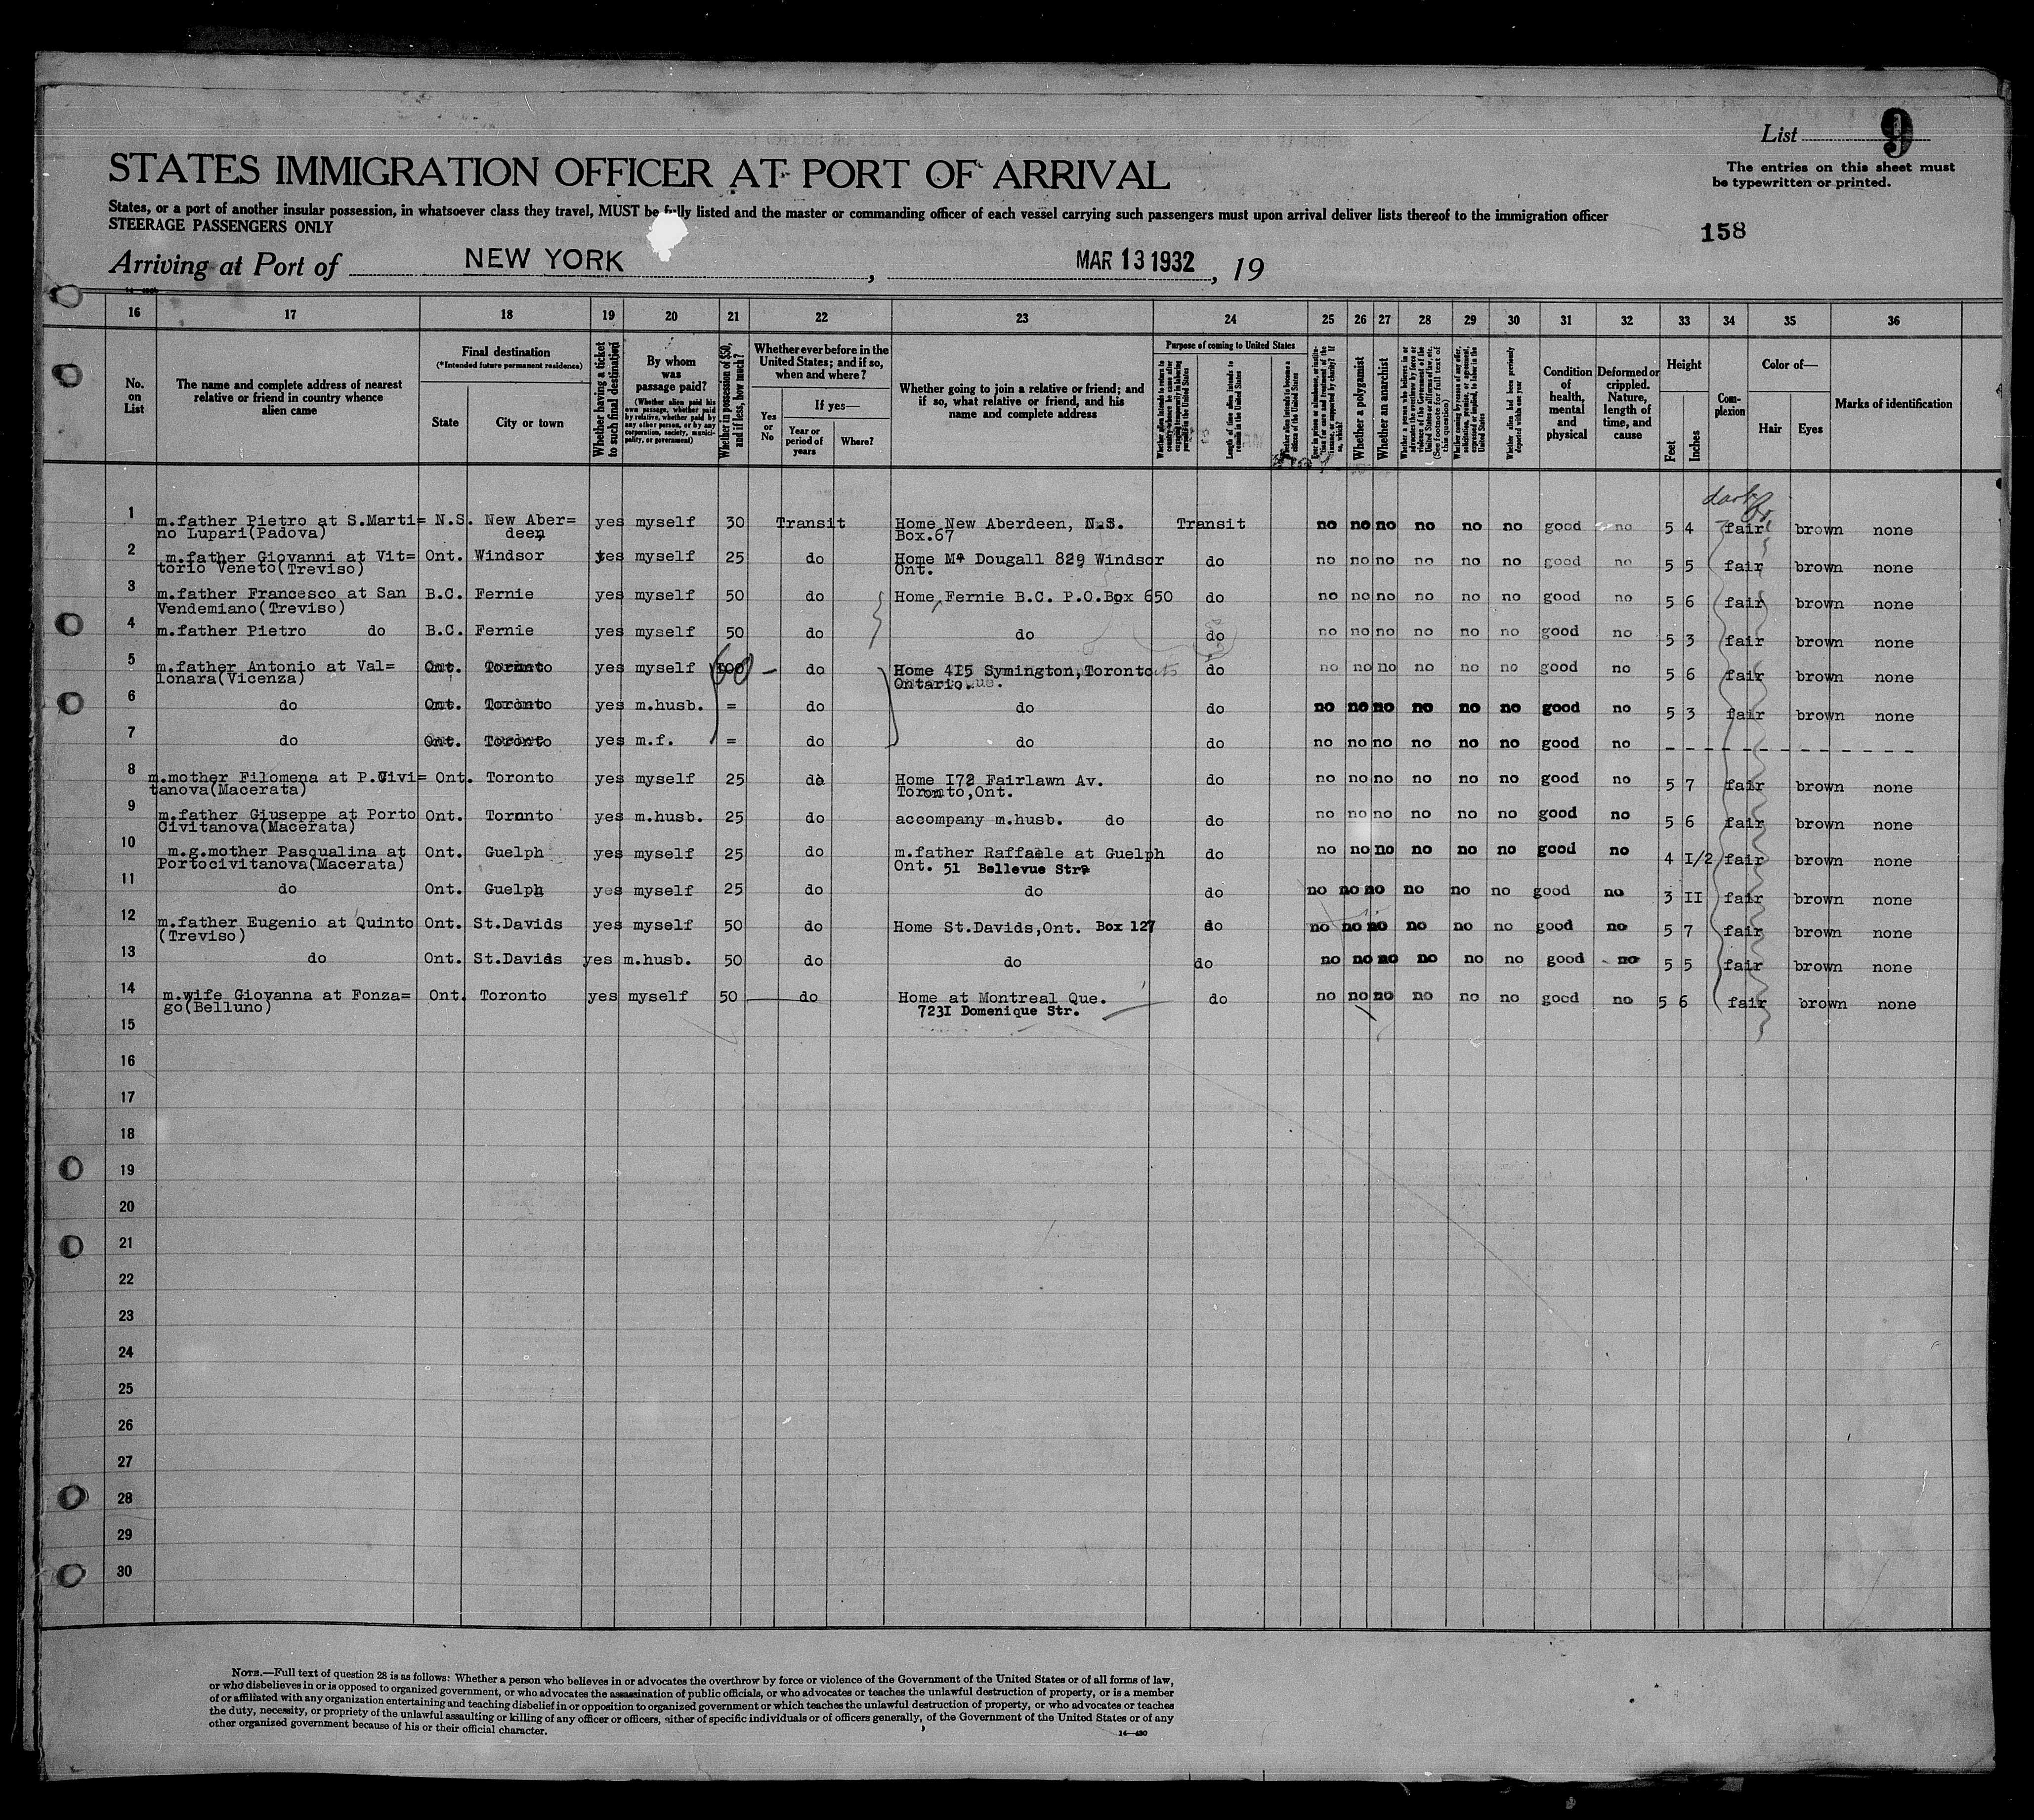 List 9
The entries on this sheet must
be typewritten or printed.
STATES IMMIGRATION OFFICER AT PORT OF ARRIVAL
States, or a port of another insular possession, in whatsoever class they travel, MUST be fully listed and the master or commanding officer of each vessel carrying such passengers must upon arrival deliver lists thereof to the immigration officer
STEERAGE PASSENGERS ONLY
158
Arriving at Port of NEW YORK, MAR 13 1932, 19
16 17 18 19 20 21 22 23 24 25 26 27 28 29 30 31 32 33 34 35 36
No. on List
The name and complete address of nearest relative or friend in country whence alien came
Final destination
(*Intended future permanent residence)
State
City or town
Whether having a ticket to such final destination
By whom was passage paid?
(Whether alien paid his own passage, whether paid by relative, whether paid by any other person, or by any corporation, society, municipality, or government)
Whether in possession of $50, and if less, how much?
Whether ever before in the United States; and if so, when and where?
Yes or No
If yes—
Year or period of years
Where?
Whether going to join a relative or friend; and if so, what relative or friend, and his name and complete address
Purpose of coming to United States
Length of time alien intends to remain in the United States
Whether alien intends to become a citizen of the United States
Whether a polygamist
Whether an anarchist
Whether alien had been previously deported within one year
Condition of health, mental and physical
Deformed or crippled. Nature, length of time, and cause
Height
Feet
Inches
Complexion
Color of—
Hair
Eyes
Marks of identification
dark Br.
1 m.father Pietro at S.Marti= N.S. New Aber= yes myself 30 Transit Home New Aberdeen, N.S. Transit no no no no no no good no 5 4 fair brown none
no Lupari(Padova) deen Box.67
2 m.father Giovanni at Vit= Ont. Windsor yes myself 25 do Home Mc Dougall 829 Windsor do no no no no no no good no 5 5 fair brown none
torio Veneto(Treviso) Ont.
3 m.father Francesco at San B.C. Fernie yes myself 50 do Home Fernie B.C. P.O.Box 650 do no no no no no no good no 5 6 fair brown none
Vendemiano(Treviso)
4 m.father Pietro do B.C. Fernie yes myself 50 do do do no no no no no no good no 5 3 fair brown none
5 m.father Antonio at Val= Ont. Toronto yes myself do Home 415 Symington,Toronto do no no no no no no good no 5 6 fair brown none
lonara(Vicenza) Ontario.
6 do Ont. Toronto yes m.husb. = do do do no no no no no no good no 5 3 fair brown none
7 do Ont. Toronto yes m.f. = do do do no no no no no no good no - - - - - - - - - - - - - -
8 m.mother Filomena at P.Civi= Ont. Toronto yes myself 25 do Home I72 Fairlawn Av. do no no no no no no good no 5 7 fair brown none
tanova(Macerata) Toronto,Ont.
9 m.father Giuseppe at Porto Ont. Toronto yes m.husb. 25 do accompany m.husb. do do no no no no no no good no 5 6 fair brown none
Civitanova(Macerata)
10 m.g.mother Pasqualina at Ont. Guelph yes myself 25 do m.father Raffaele at Guelph do no no no no no no good no 4 I/2 fair brown none
Portocivitanova(Macerata) Ont. 51 Bellevue Str.
11 do Ont. Guelph yes myself 25 do do do no no no no no no good no 3 II fair brown none
12 m.father Eugenio at Quinto Ont. St.Davids yes myself 50 do Home St.Davids,Ont. Box 127 do no no no no no no good no 5 7 fair brown none
(Treviso)
13 do Ont. St.Davids yes m.husb. 50 do do do no no no no no no good no 5 5 fair brown none
14 m.wife Giovanna at Fonza= Ont. Toronto yes myself 50 do Home at Montreal Que. do no no no no no no good no 5 6 fair brown none
go(Belluno) 723I Domenique Str.
15
16
17
18
19
20
21
22
23
24
25
26
27
28
29
30
NOTE.—Full text of question 28 is as follows: Whether a person who believes in or advocates the overthrow by force or violence of the Government of the United States or of all forms of law,
or who disbelieves in or is opposed to organized government, or who advocates the assassination of public officials, or who advocates or teaches the unlawful destruction of property, or is a member
of or affiliated with any organization entertaining and teaching disbelief in or opposition to organized government or which teaches the unlawful destruction of property, or who advocates or teaches
the duty, necessity, or propriety of the unlawful assaulting or killing of any officer or officers, either of specific individuals or of officers generally, of the Government of the United States or of any
other organized government because of his or their official character.
14—430